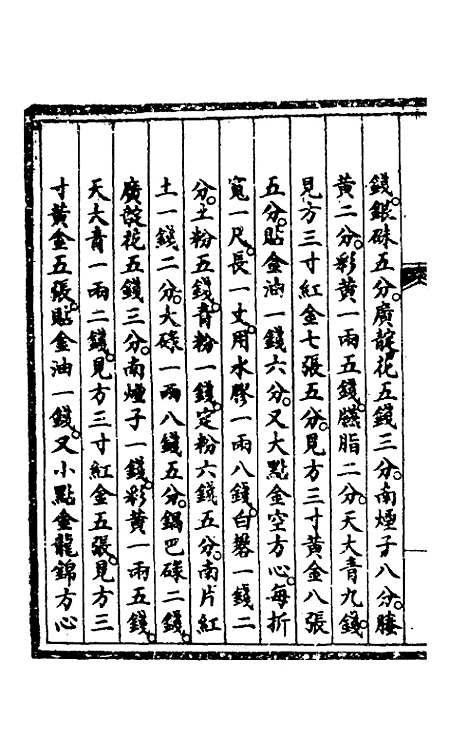 錢。銀硃五分。廣靛花五錢三分。南煙子八分。籐
黃二分。彩黃一兩五錢。臙脂二分。天大青九錢。
見方三寸紅金七張五分。見方三寸黃金八張
五分。貼金油一錢六分。又大點金空方心。每折
寬一尺。長一丈。用水膠一兩八錢。白礬一錢二
分。土粉五錢。青粉一錢。定粉六錢五分。南片紅
土一錢二分。大碌一兩八錢五分。鍋巴碌二錢。
廣靛花五錢三分。南煙子一錢。彩黃一兩五錢。
天大青一兩二錢。見方三寸紅金五張。見方三
寸黃金五張。貼金油一錢。又小點金龍錦方心